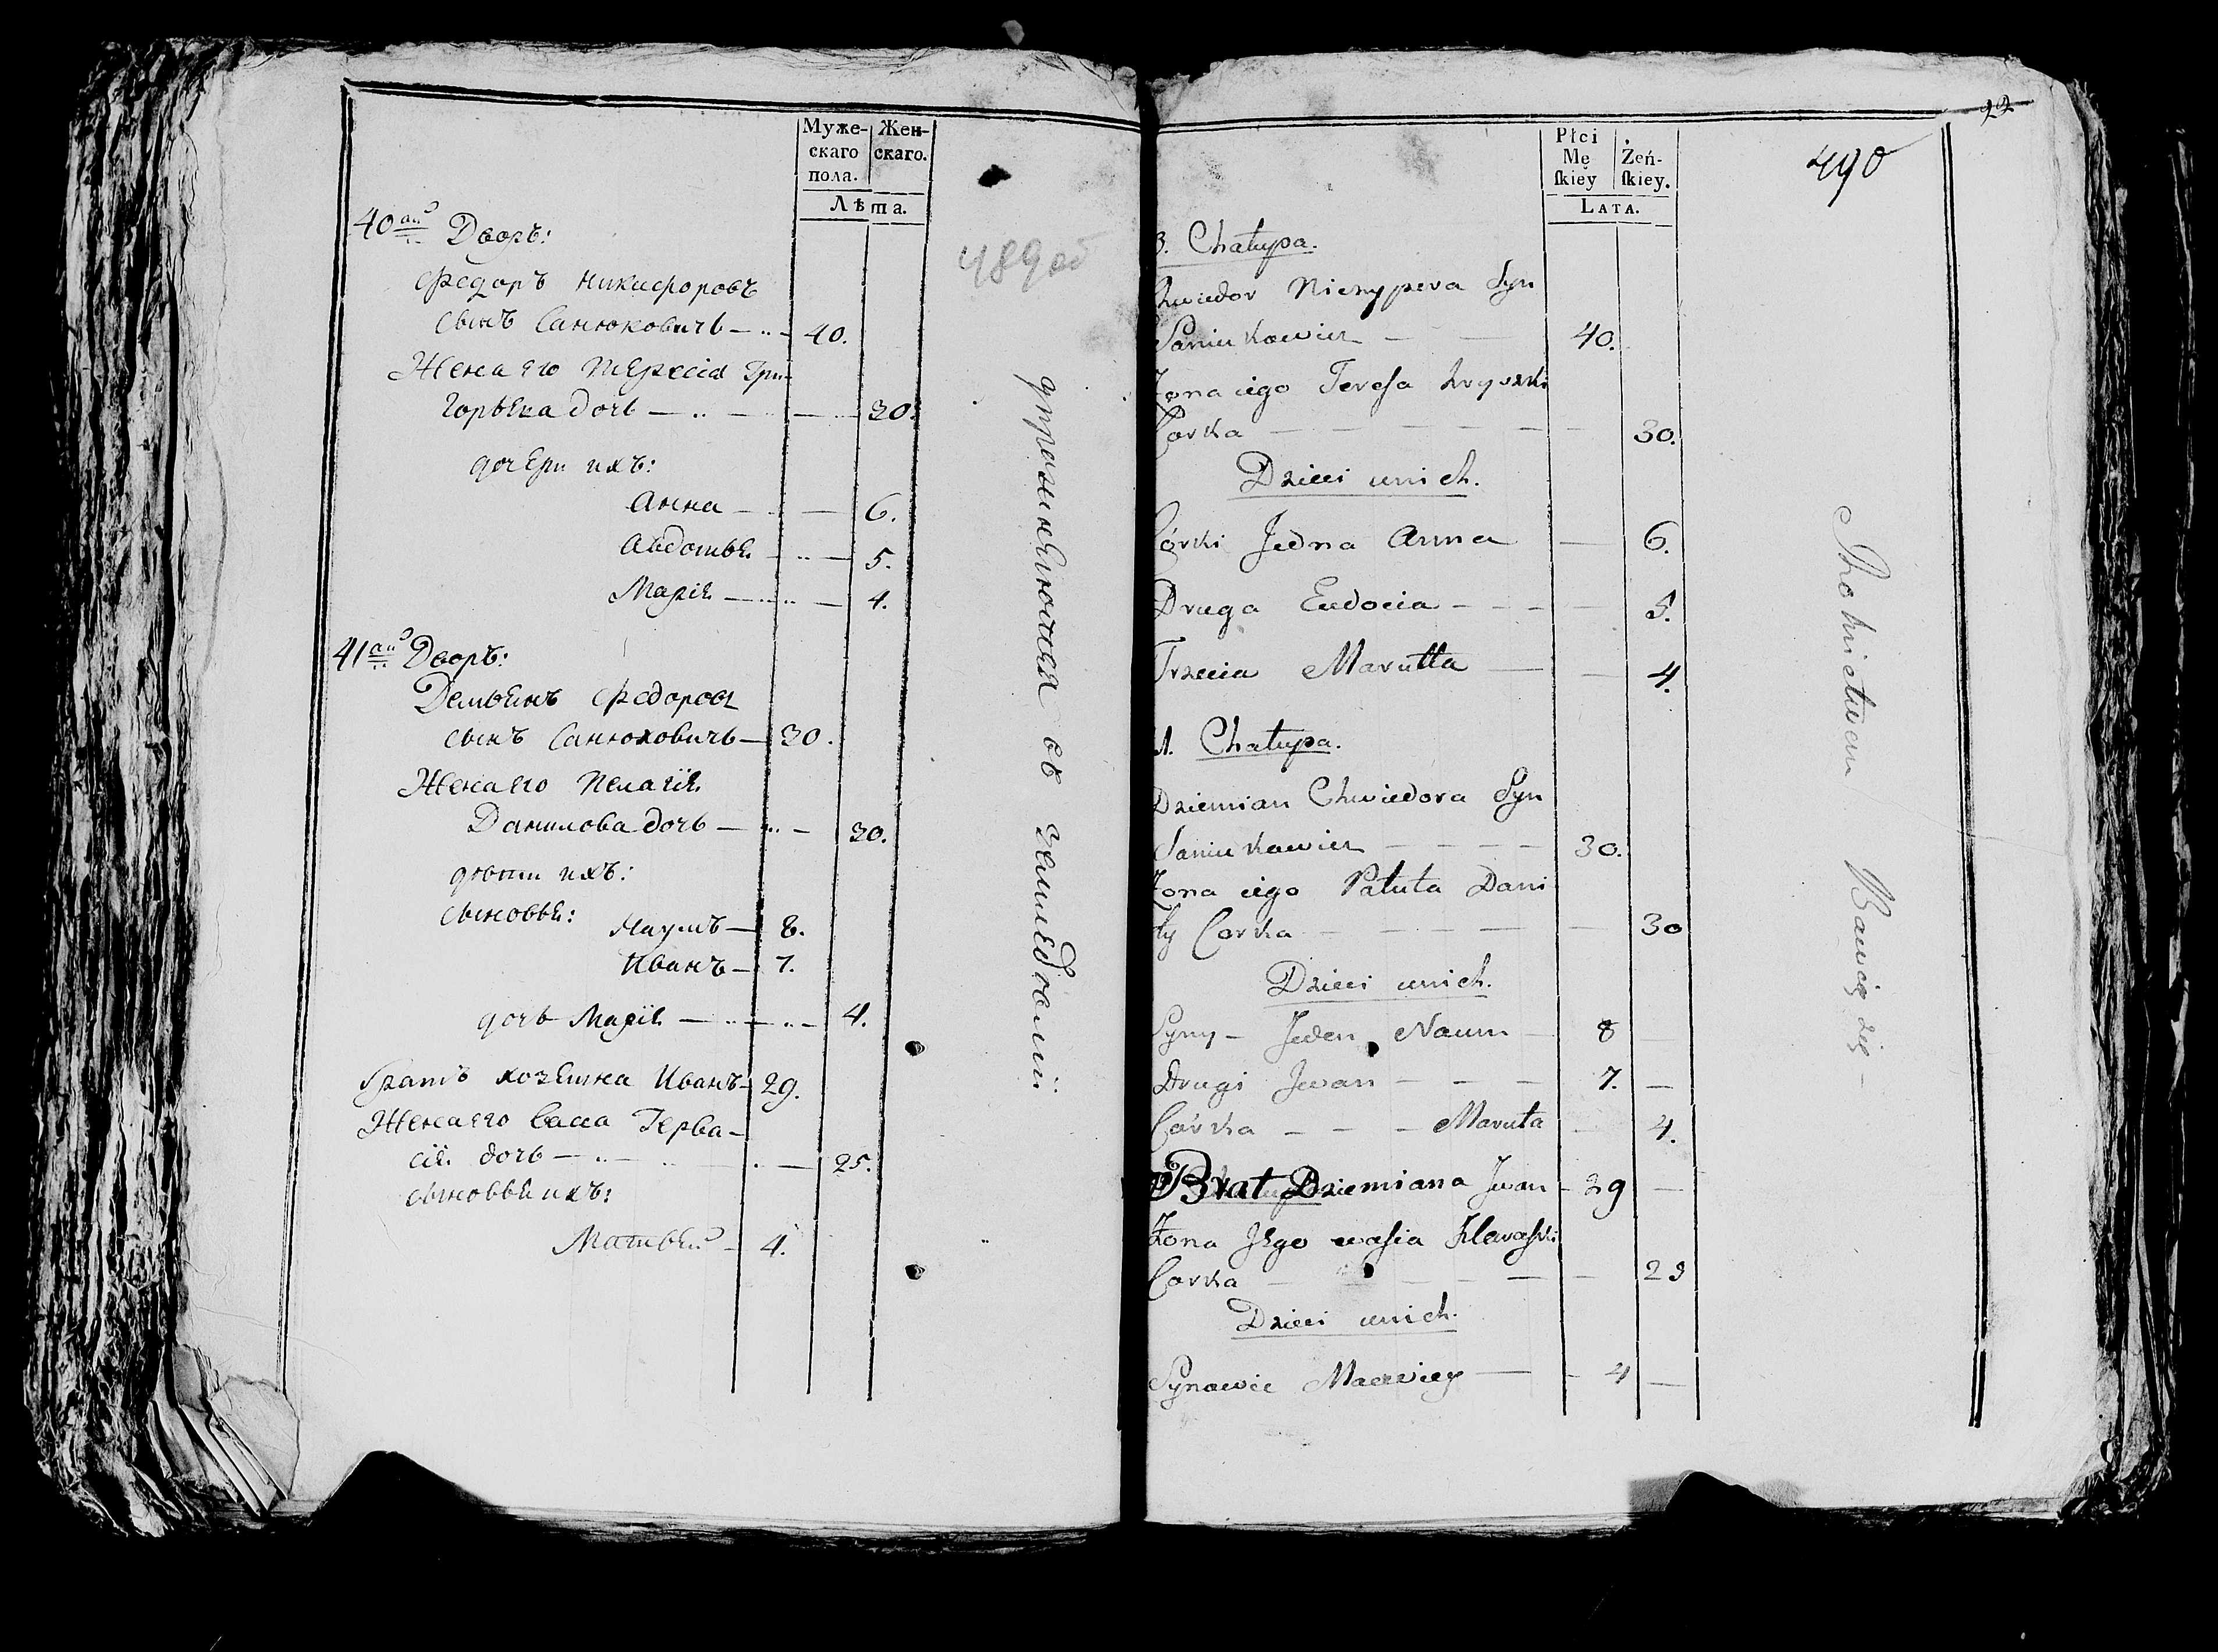 Муже-
скаго
пола.
Жен-
скаго.
Лѣта.
40ай Дворъ:
Федоръ Никифоровъ
сынъ Санюковичь — 40.
Жена его Терксія Гри-
горьева дочь — 30.
дочери ихъ:
Анна — 6.
Авдотья — 5.
Марія — 4.
41ай Дворъ:
Демьянъ Федоровъ
сынъ Санюковичь — 30.
Жена его Пелагія
Данилова дочь — 30.
дѣти ихъ:
сыновья: Наумъ — 8.
Иванъ — 7.
дочь Марія — 4.
братъ хозяина Иванъ — 29.
Жена его Васса Герва-
сія дочь — 25.
сыновья ихъ:
Матвей — 4.
489об
упражняются въ земледѣліи
22
490
Płci
Mę
skiey
Żeń-
skiey.
LATA.
3. Chałupa.
Chwiedor Nieczypera Syn
Saniukowicz — 40.
Zona iego Teresa Hryszki
Corka — 30.
Dzieci unich.
Córki Jedna Anna — 6.
Druga Eudocia — 5.
Trzecia Marutta — 4.
1. Chałupa.
Dziemian Chwiedora Syn
Saniukowicz — 30.
Zona iego Pałuta Dani
ły Corka — 30
Dzieci unich.
Syny — Jeden Naum — 8
Drugi Jwan — 7.
Córka — Maruta 4.
Brat Dziemiana Jwan — 29
Zona Jego wasia
Corka — 25
Dzieci unich.
Synowie Maciey — 4
Rolnictwem Bawią się —